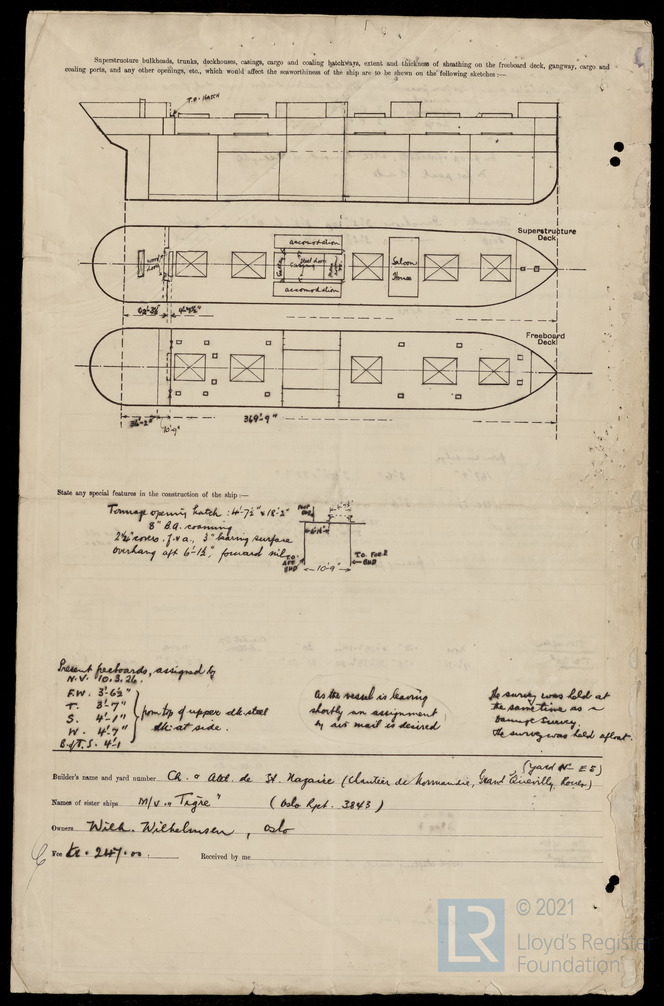 Superstructure bulkheads, trunks, deckhouses, casings, cargo and coaling hatchways, extent and thickness of sheathing on the freeboard deck, gangway, cargo and
coaling ports, and any other openings, etc., which would affect the seaworthiness of the ship are to be shewn on the following sketches :—
T.O. HATCH
Superstructure
Deck
accomodation
Casing
Saloon
House
accomodation
62'-3½" 4'-7½"
Freeboard
Deck
36'-2" 10'-9" 369'-9"
State any special features in the construction of the ship :—
Tonnage opening hatch : 4'-7½" x 18'-2"
8" B.A. coaming
2½" covers. f. & a., 3" bearing surface
overhang aft 6'-1½", forward nil
TO AFT END
10'-9"
TO FORE END
Present freeboards, assigned by
N.V. 10.3.26.
F.W. 3'-6½"
T. 3'-7"
S. 4'-1"
W. 4'-7"
B. of T. S. 4'-1
from top of upper dk. steel
dk. at side.
As the vessel is leaving
shortly an assignment
by air mail is desired
The survey was held at
the same time as a
Damage Survey.
The survey was held afloat.
(Yard No E5)
Builder's name and yard number Ch. & Atel. de St. Nazaire (Chantier de Normandie, Grand Quevilly, Rouen)
Names of sister ships M/V "Tigre" (Oslo Rpt. 3843)
Owners Wilh. Wilhelmsen, Oslo
Fee Kr. 247.00. Received by me
LR
© 2021
Lloyd's Register
Foundation